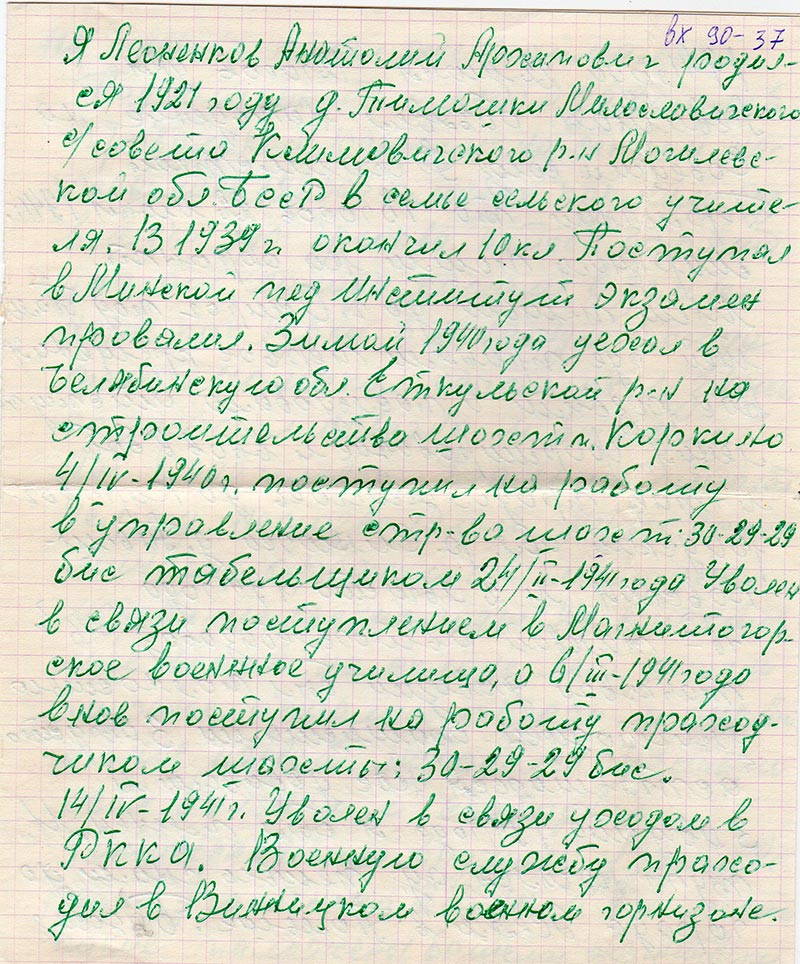 вх 90-37
Я Леоненков Анатолий Архипович родил-
ся 1921 году д. Тимошки Милославичского
с/совета Климовичского р-н Могилевс-
кой обл. БССР в семье сельского учите-
ля. В 1939 г. окончил 10 кл. Поступал
в Минской пед институт экзамен
провалил. Зимой 1940 года уехал в
Челябинскую обл. Еткульской р-н на
строительство шахт п. Коркино
4/IV-1940г. поступил на работу
в управление стр-ва шахт: 30-29-29
бис табельщиком 24/II-1941 года Уволен
в связи поступлением в Магнитогор-
ское военное училище, а 6/III-1941 года
внов поступил на работу праход-
чиком шахты: 30-29-29 бис.
14/IV-1941г. Уволен в связи уходом в
РККА. Военную службу прахо-
дил в Винницком военном горнизоне.